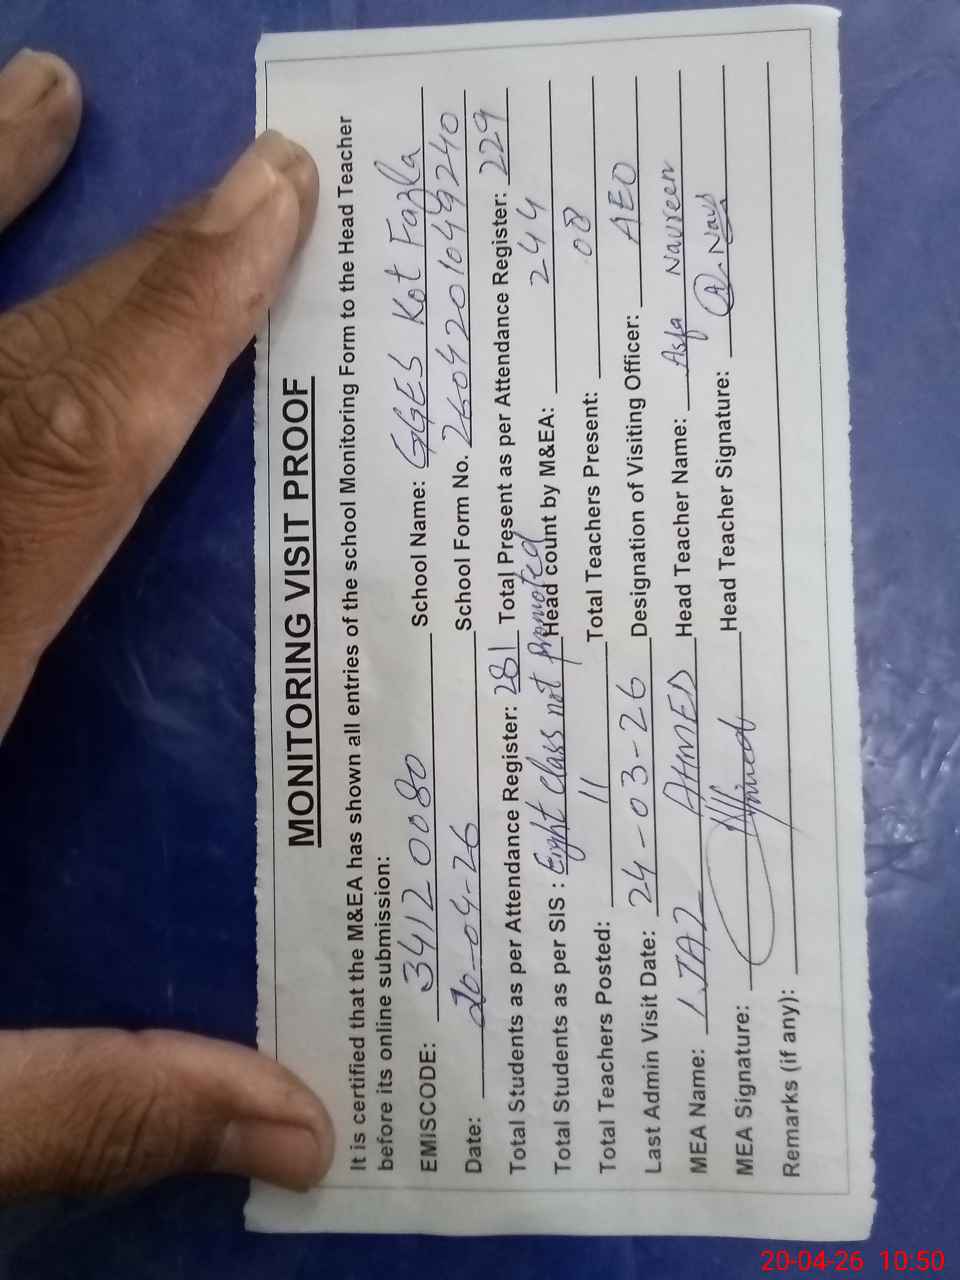 MONITORING VISIT PROOF
It is certified that the M&EA has shown all entries of the school Monitoring Form to the Head Teacher
before its online submission:
EMISCODE: 34120080 School Name: GGES Kot Fazla
Date: 20-04-26 School Form No. 2604201049240
Total Students as per Attendance Register: 281 Total Present as per Attendance Register: 229
Total Students as per SIS : Eight class not promoted Head count by M&EA: 244
Total Teachers Posted: 11 Total Teachers Present: 08
Last Admin Visit Date: 24-03-26 Designation of Visiting Officer: AEO
MEA Name: IJAZ AHMED Head Teacher Name: Asfa Navreen
MEA Signature: Head Teacher Signature:
Remarks (if any):
20-04-26 10:50